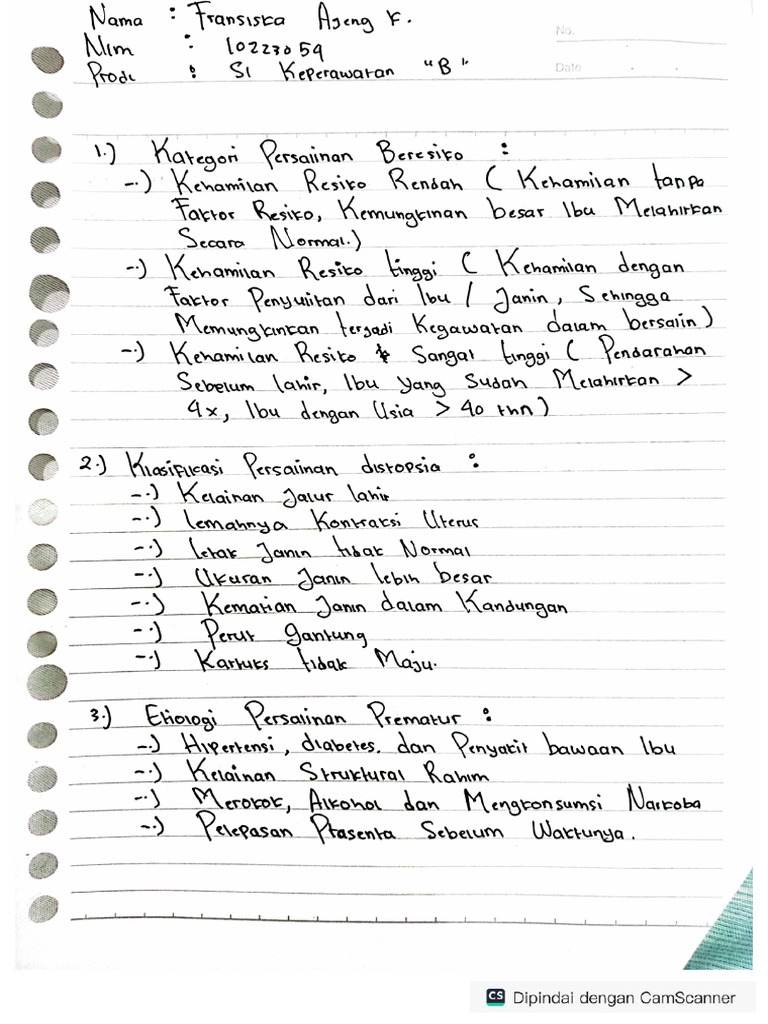 Nama : Fransiska Ajeng K.
No.
Nim : 10223059
Prodi : S1 Keperawatan "B"
Date
1.) Kategori Persalinan Beresiko :
-.) Kehamilan Resiko Rendah ( Kehamilan tanpa
Faktor Resiko, Kemungkinan besar Ibu Melahirkan
Secara Normal.)
-.) Kehamilan Resiko tinggi ( Kehamilan dengan
Faktor Penyulitan dari Ibu / Janin, Sehingga
Memungkinkan terjadi Kegawatan dalam bersalin)
-.) Kehamilan Resiko Sangat tinggi ( Pendarahan
Sebelum lahir, Ibu yang Sudah Melahirkan >
4x, Ibu dengan Usia > 40 thn)
2.) Klasifikasi Persalinan distopsia :
-.) Kelainan Jalur lahir
-.) lemahnya Kontraksi Uterus
-.) letak Janin tidak Normal
-.) Ukuran Janin lebih besar
-.) Kematian Janin dalam Kandungan
-.) Perut gantung
-.) Kartuks tidak Maju.
3.) Ehologi Persalinan Prematur :
-.) Hipertensi, diabetes, dan Penyakit bawaan Ibu
-.) Kelainan Struktural Rahim
-.) Merokok, Alkohol dan Mengkonsumsi Narkoba
-.) Pelepasan Plasenta Sebelum Waktunya.
CS Dipindai dengan CamScanner